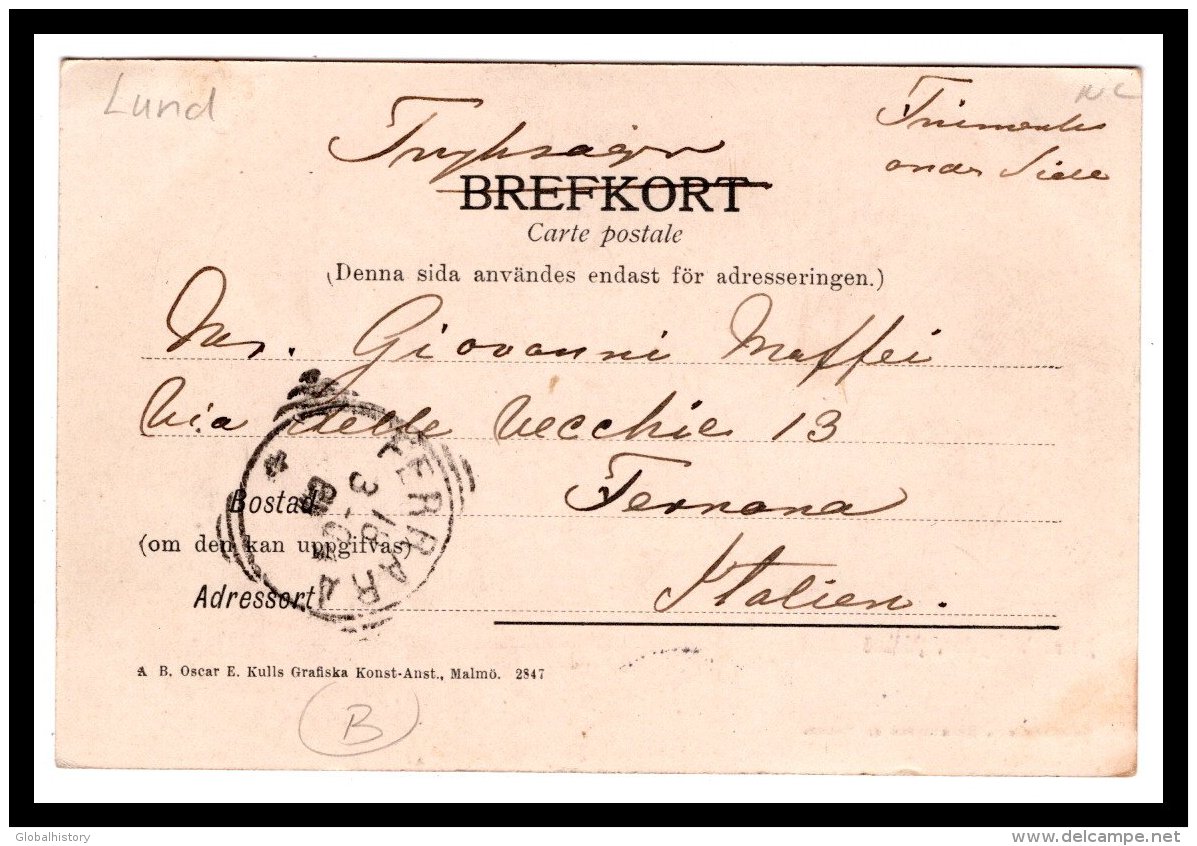 Lund
Tryksager
BREFKORT
Carte postale
(Denna sida användes endast för adresseringen.)
Mr. Giovanni Maffei
Via delle Vecchie 13
Ferrara
Bostad
(om den kan uppgifvas)
Italien.
Adressort
FERRARA
A B. Oscar E. Kulls Grafiska Konst-Anst., Malmö. 2847
B
Globalhistory
delcampe.net